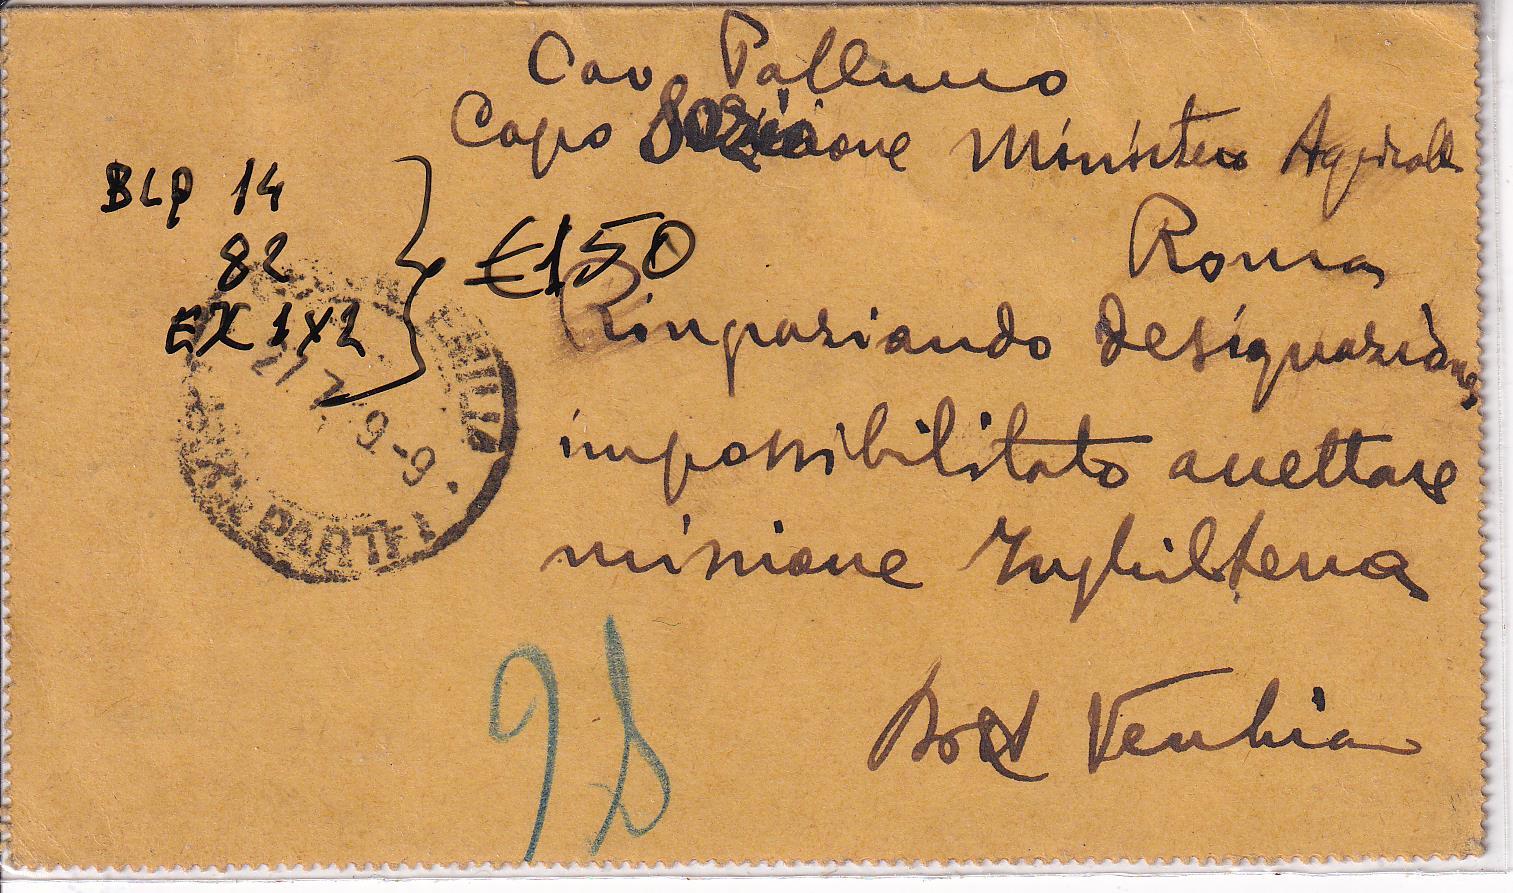 Cav Pallucco
Capo Sezione Ministero Agricolt
Roma
Ringraziando designazione
impossibilitato accettare
missione Inghilterra
Dott Vecchia
BLP 14
82
EX 1X2
€150
EMILIA
21 7 19-9
PARTE